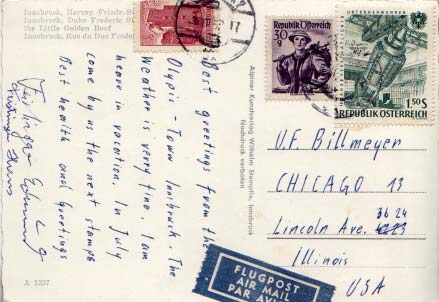 Innsbruck, Herzog-Friedr.-S
Innsbruck, Duke Frederic S
the Little Golden Roof
Innsbruck, Rue du Duc Frede
Best greetings from the
Olypic - Town Innsbruck. The
Weather is very fine. I am
heare in vacation. In July
come by us the next stamps
Best health and greetings
A 1237
Alpiner Kunstverlag Wilhelm Stempfle, Innsbruck
Nachdruck verboten
FLUGPOST
AIR MAIL
PAR AVION
30 g
Republik Österreich
UNTERNEHMUNGEN
1.50 S
REPUBLIK ÖSTERREICH
V.F. Billmeyer
CHICAGO 13
3624
Lincoln Ave. 4223
Illinois
USA